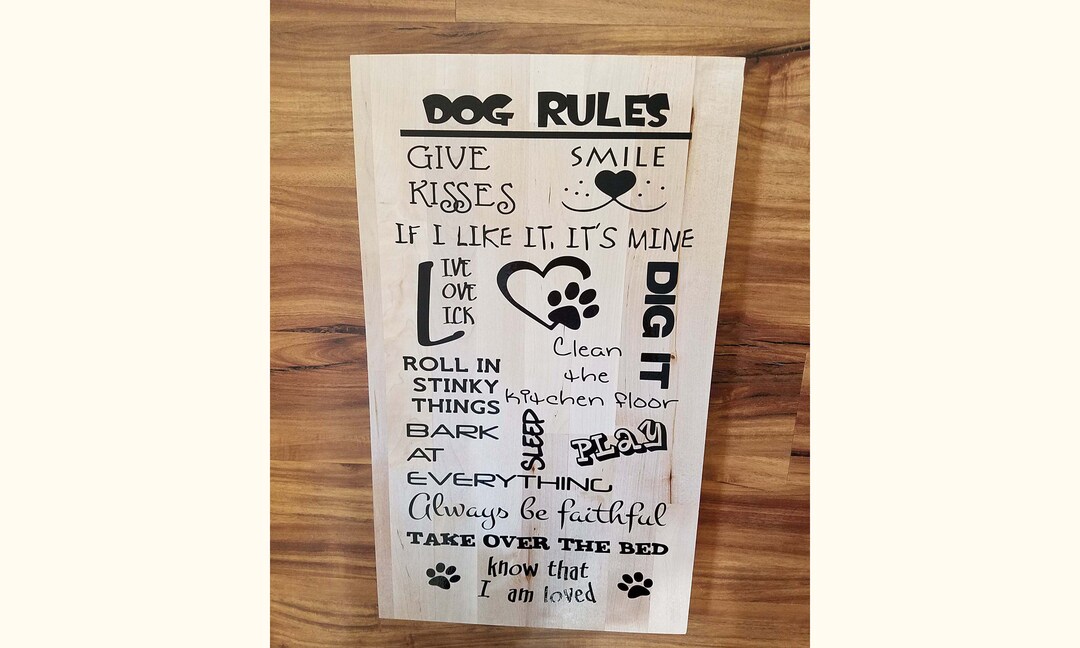 DOG RULES
GIVE
KISSES
SMILE
IF I LIKE IT, IT'S MINE
LIVE
OVE
ICK
DIG IT
Clean
the
kitchen floor
ROLL IN
STINKY
THINGS
SLEEP
PLAY
BARK
AT
EVERYTHING
Always be faithful
TAKE OVER THE BED
know that
I am loved